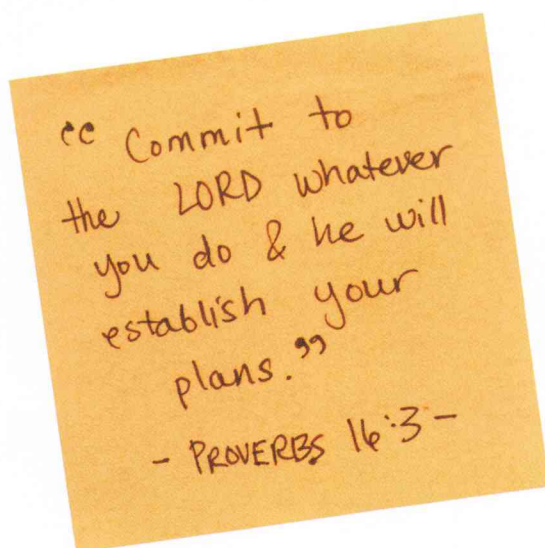 “Commit to
the LORD whatever
you do & he will
establish your
plans.”
- PROVERBS 16:3 -